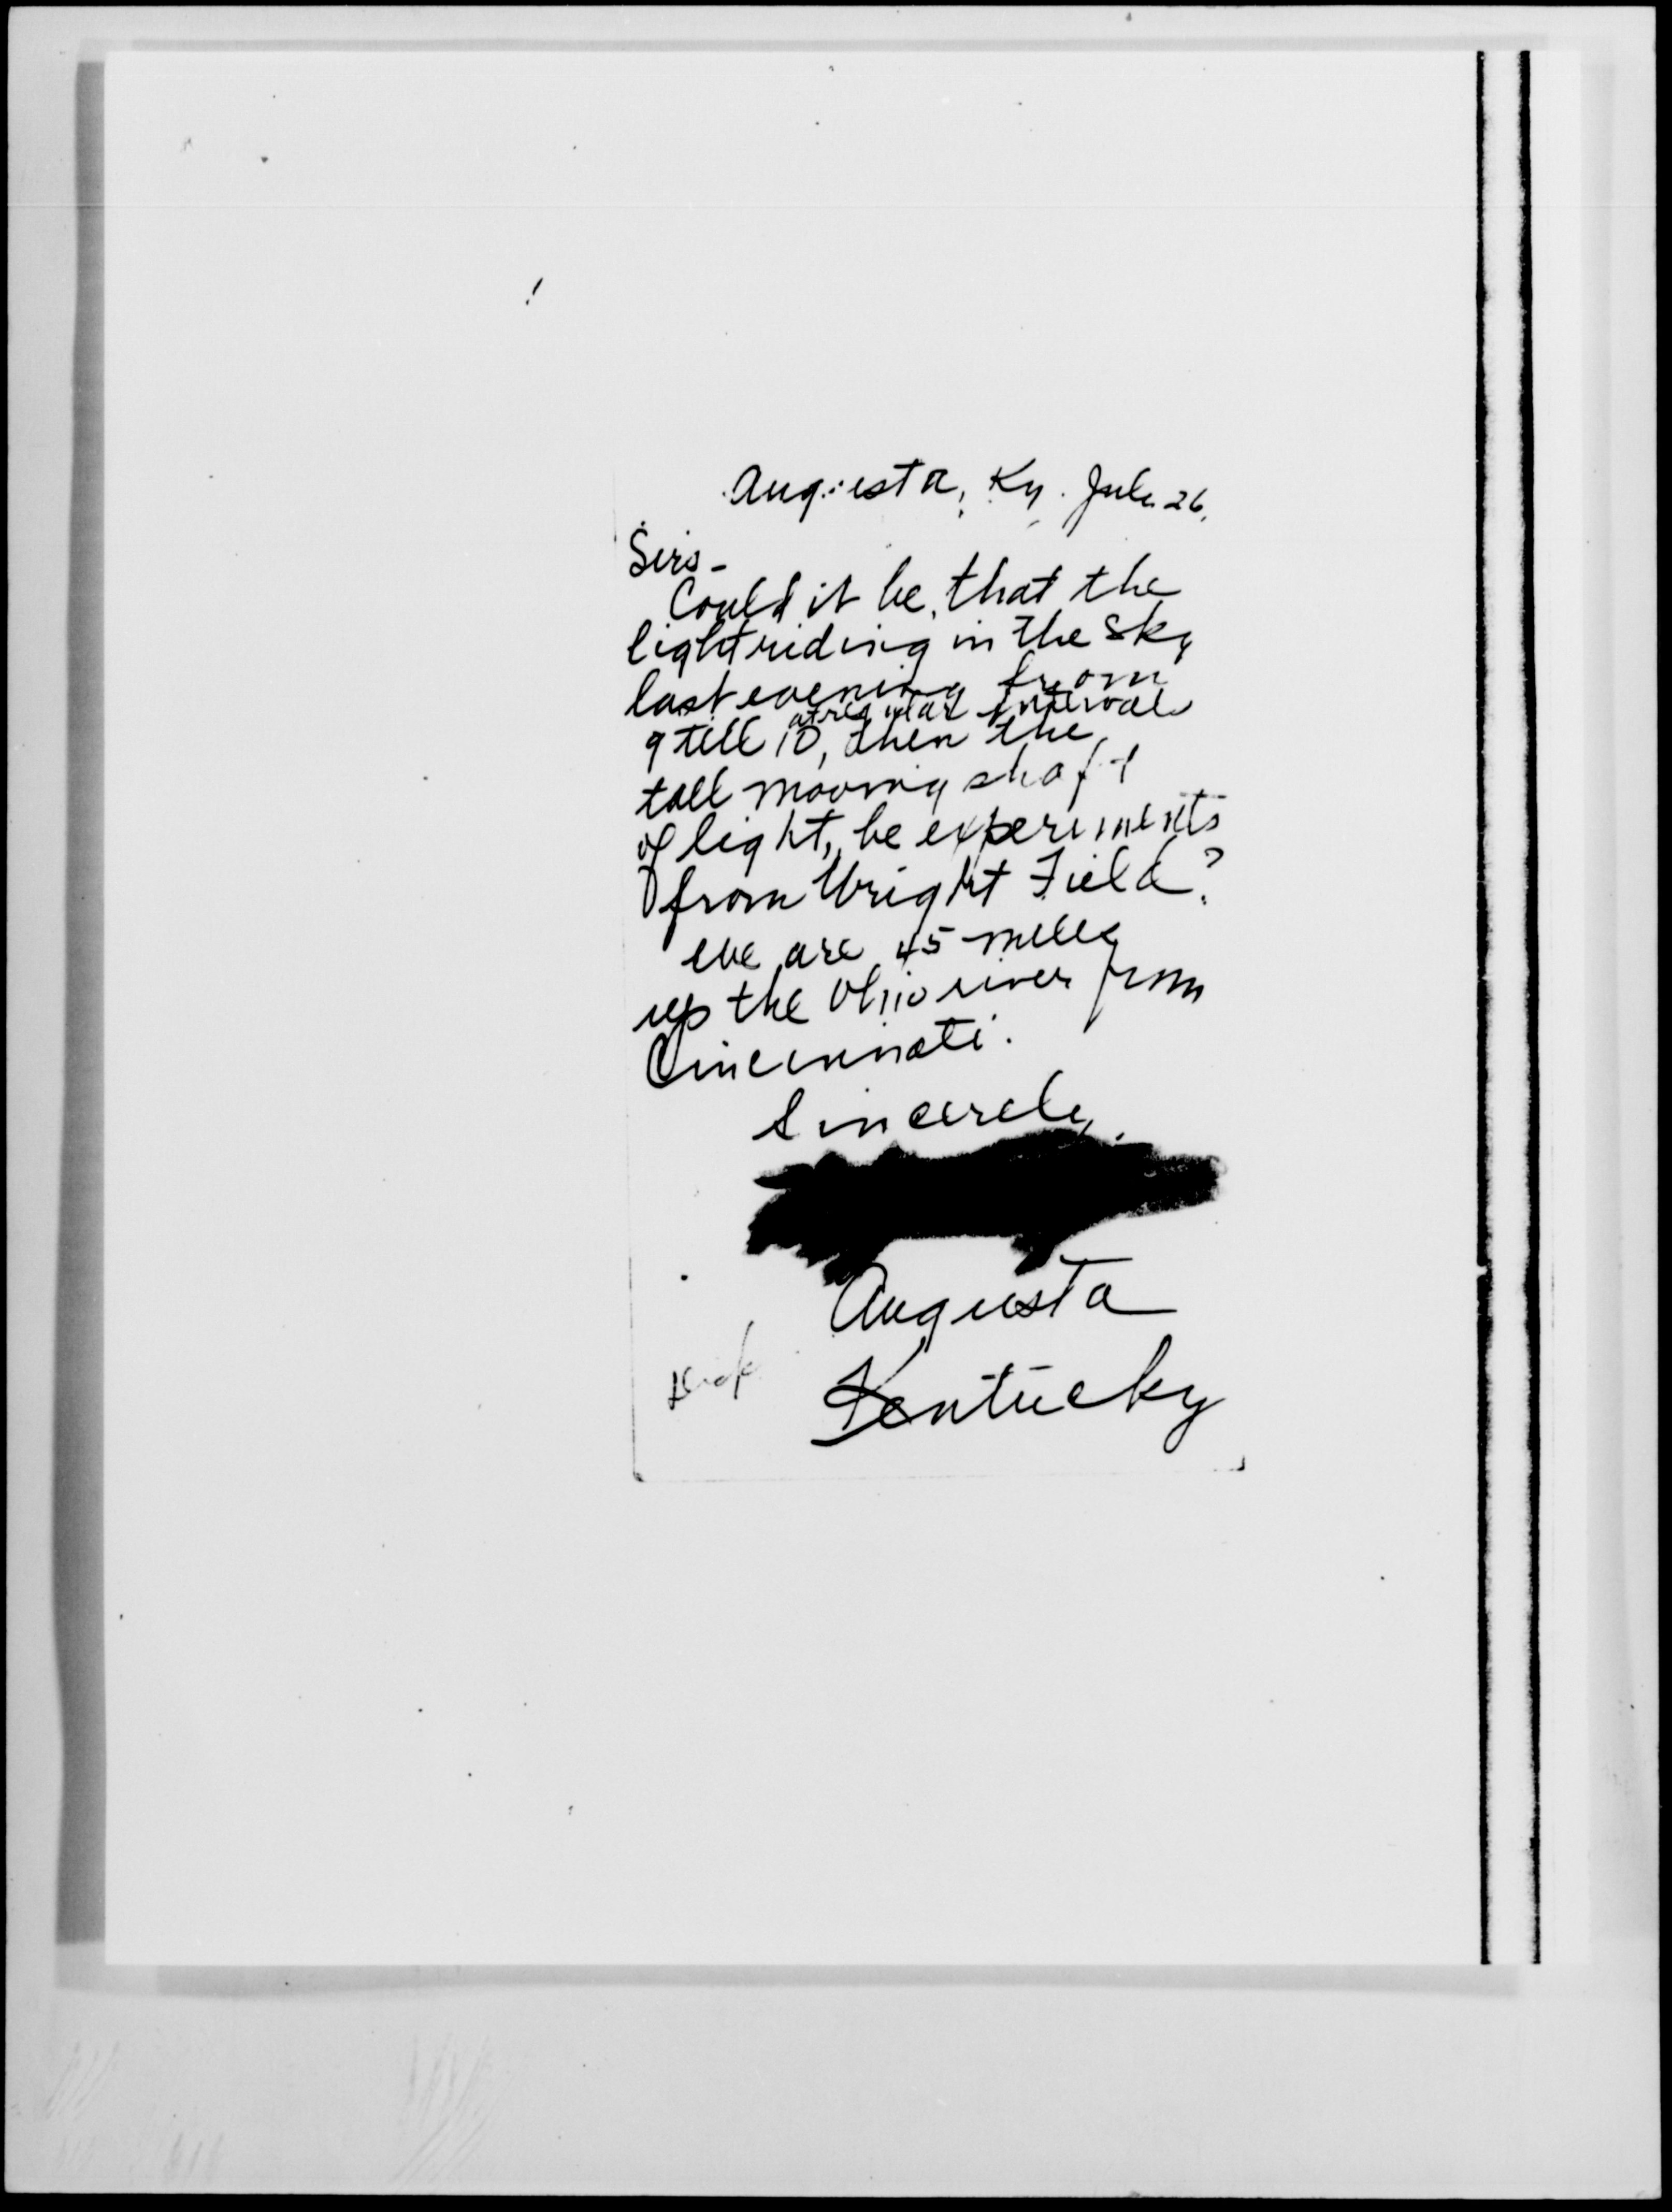 Augusta, Ky. July 26,
Sirs-
Could it be, that the
light riding in the sky
last evening from
at regular intervals
9 till 10, then the
tall moving shaft
of light, be experiments
from Wright Field?
We are 45 miles
up the Ohio river from
Cincinnati.
Sincerely,
Augusta
Kentucky